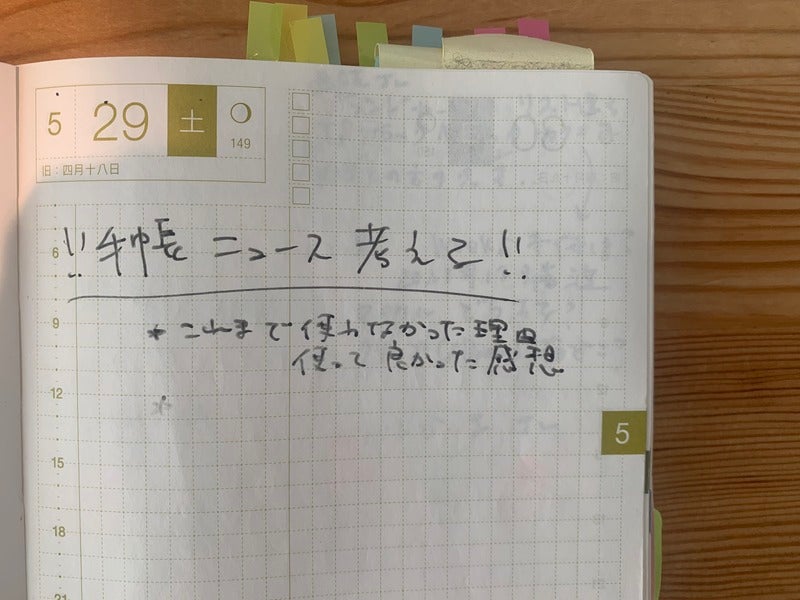 5 29 土
149
旧:四月十八日
!! 手帳 ニュース 考える !!
* これまで使わなかった理由
使って良かった感想
*
6
9
12
15
18
21
5